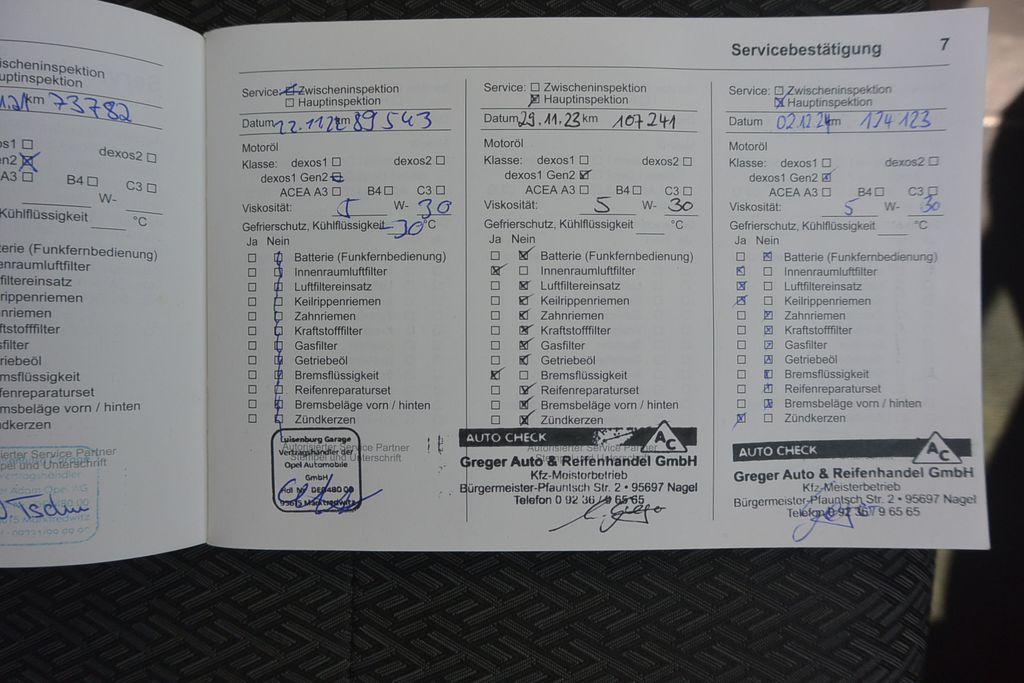 Servicebestätigung 7
uptinspektion
km 73782
dexos2
A3 B4 C3
W-
Kühlflüssigkeit °C
Batterie (Funkfernbedienung)
enraumluftfilter
filtereinsatz
rippenriemen
nriemen
ftstofffilter
filter
riebeöl
msflüssigkeit
fenreparaturset
msbeläge vorn / hinten
dkerzen
Service: Zwischeninspektion
Hauptinspektion
Datum 22.11.22 89543
Motoröl
Klasse: dexos1 dexos2
dexos1 Gen2
ACEA A3 B4 C3
Viskosität: 5 W- 30
Gefrierschutz, Kühlflüssigkeit -30 °C
Ja Nein
Batterie (Funkfernbedienung)
Innenraumluftfilter
Luftfiltereinsatz
Keilrippenriemen
Zahnriemen
Kraftstofffilter
Gasfilter
Getriebeöl
Bremsflüssigkeit
Reifenreparaturset
Bremsbeläge vorn / hinten
Zündkerzen
Autorisierter Service Partner
Stempel und Unterschrift
Luisenburg Garage
Vertragshändler der
Opel Automobile
GmbH
Service: Zwischeninspektion
Hauptinspektion
Datum 29.11.23 km 107241
Motoröl
Klasse: dexos1 dexos2
dexos1 Gen2
ACEA A3 B4 C3
Viskosität: 5 W- 30
Gefrierschutz, Kühlflüssigkeit °C
Ja Nein
Batterie (Funkfernbedienung)
Innenraumluftfilter
Luftfiltereinsatz
Keilrippenriemen
Zahnriemen
Kraftstofffilter
Gasfilter
Getriebeöl
Bremsflüssigkeit
Reifenreparaturset
Bremsbeläge vorn / hinten
Zündkerzen
AUTO CHECK AC
Greger Auto & Reifenhandel GmbH
Kfz-Meisterbetrieb
Bürgermeister-Pfauntsch Str. 2 • 95697 Nagel
Telefon 0 92 36 / 9 65 65
Service: Zwischeninspektion
Hauptinspektion
Datum 02.12.24 km 124123
Motoröl
Klasse: dexos1 dexos2
dexos1 Gen2
ACEA A3 B4 C3
Viskosität: 5 W- 30
Gefrierschutz, Kühlflüssigkeit °C
Ja Nein
Batterie (Funkfernbedienung)
Innenraumluftfilter
Luftfiltereinsatz
Keilrippenriemen
Zahnriemen
Kraftstofffilter
Gasfilter
Getriebeöl
Bremsflüssigkeit
Reifenreparaturset
Bremsbeläge vorn / hinten
Zündkerzen
AUTO CHECK AC
Greger Auto & Reifenhandel GmbH
Kfz-Meisterbetrieb
Bürgermeister-Pfauntsch Str. 2 • 95697 Nagel
Telefon 0 92 36 / 9 65 65